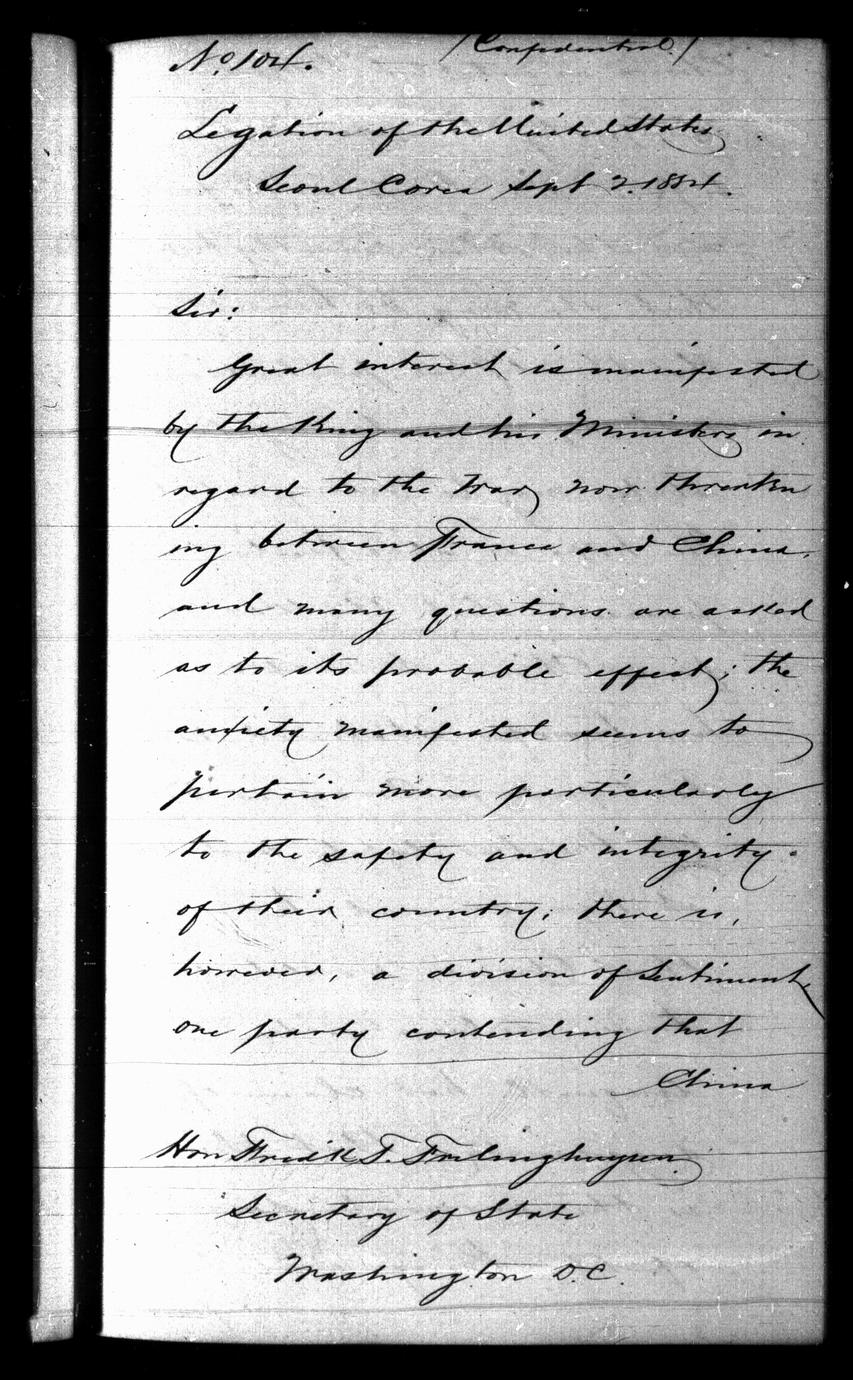 (Confidential.)
No. 104.
Legation of the United States
Seoul Corea Sept 2. 1884.
Sir:
Great interest is manifested
by the King and his Ministers in
regard to the War, now threaten
ing between France and China,
and many questions are asked
as to its probable effect; the
anxiety manifested seems to
pertain more particularly
to the safety and integrity
of their country; there is,
however, a division of sentiment,
one party contending that
China
Hon Fred'k T. Frelinghuysen
Secretary of State
Washington D.C.